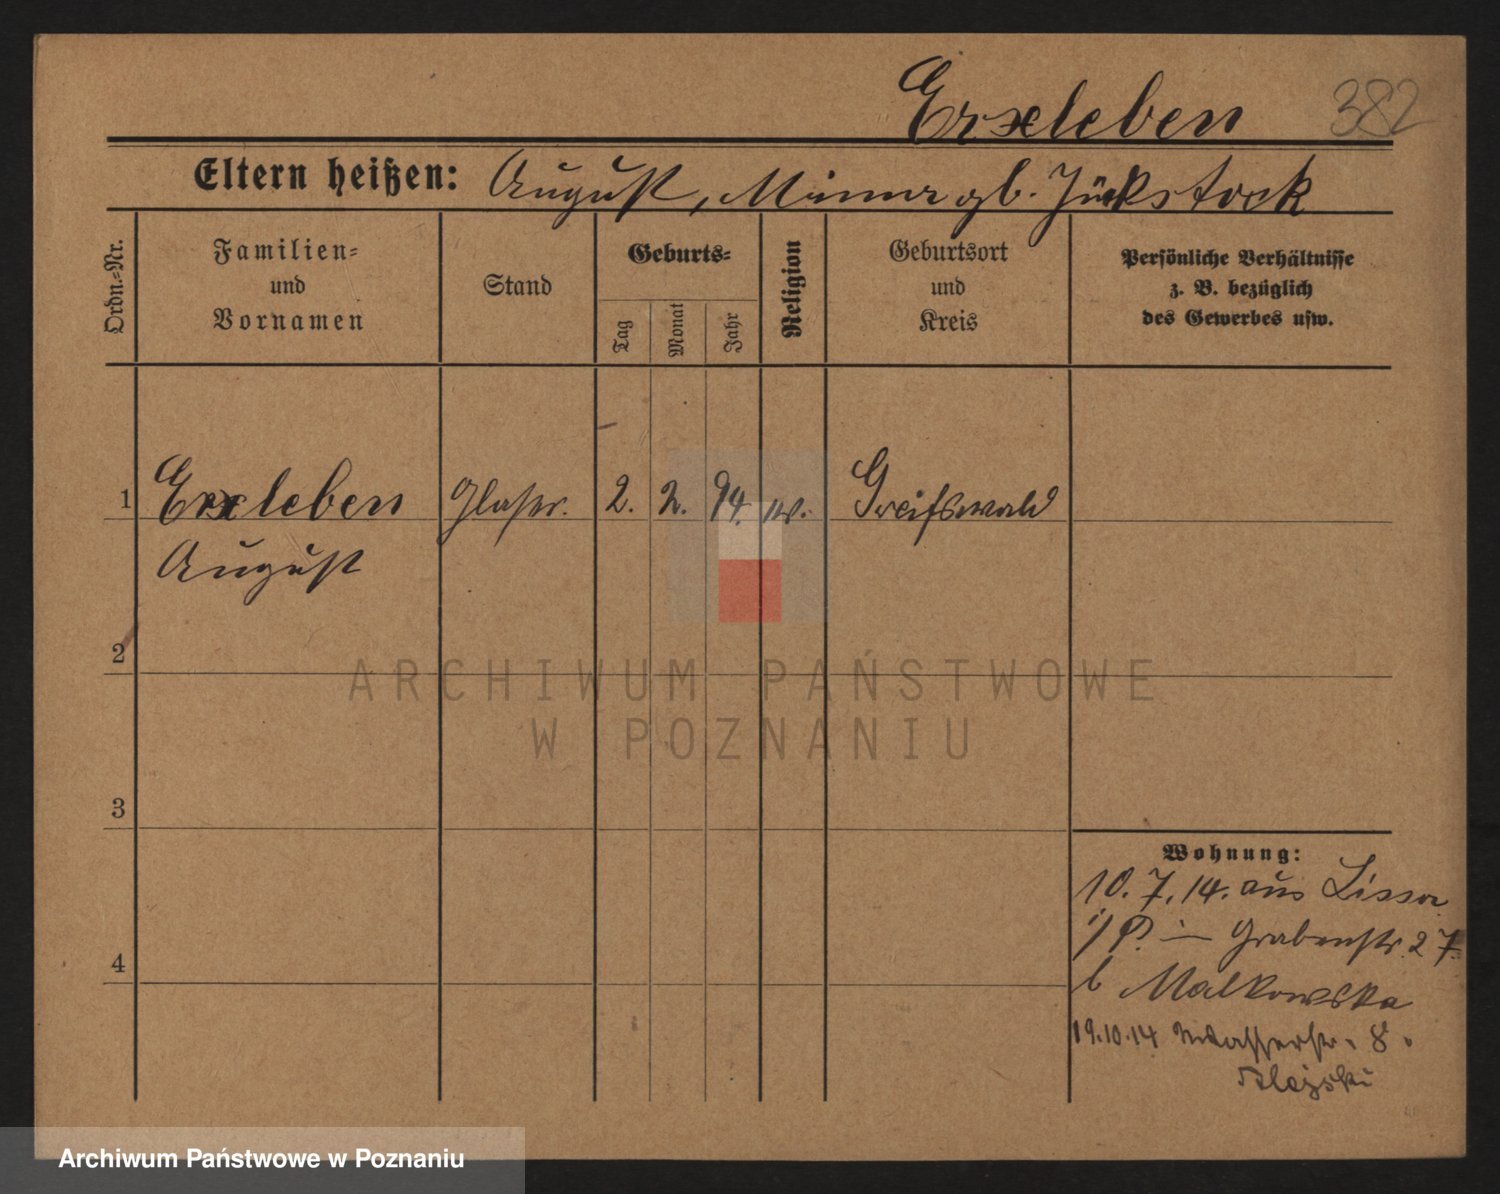 Erxleben 382
Eltern heißen: August, Minna gb. Jückstock
Ordn.-Nr.
Familien-
und
Vornamen
Stand
Geburts-
Tag
Monat
Jahr
Religion
Geburtsort
und
Kreis
Persönliche Verhältnisse
z. B. bezüglich
des Gewerbes usw.
1 Erxleben Glaser. 2. 2. 94. Greifswald
August
2
3
4
Wohnung:
10. 7. 14. aus Lissa
i/P. — Grabenstr. 27
b Malkowska
19.10.14 Wasserstr. 8.
ARCHIWUM PAŃSTWOWE
W POZNANIU
Archiwum Państwowe w Poznaniu